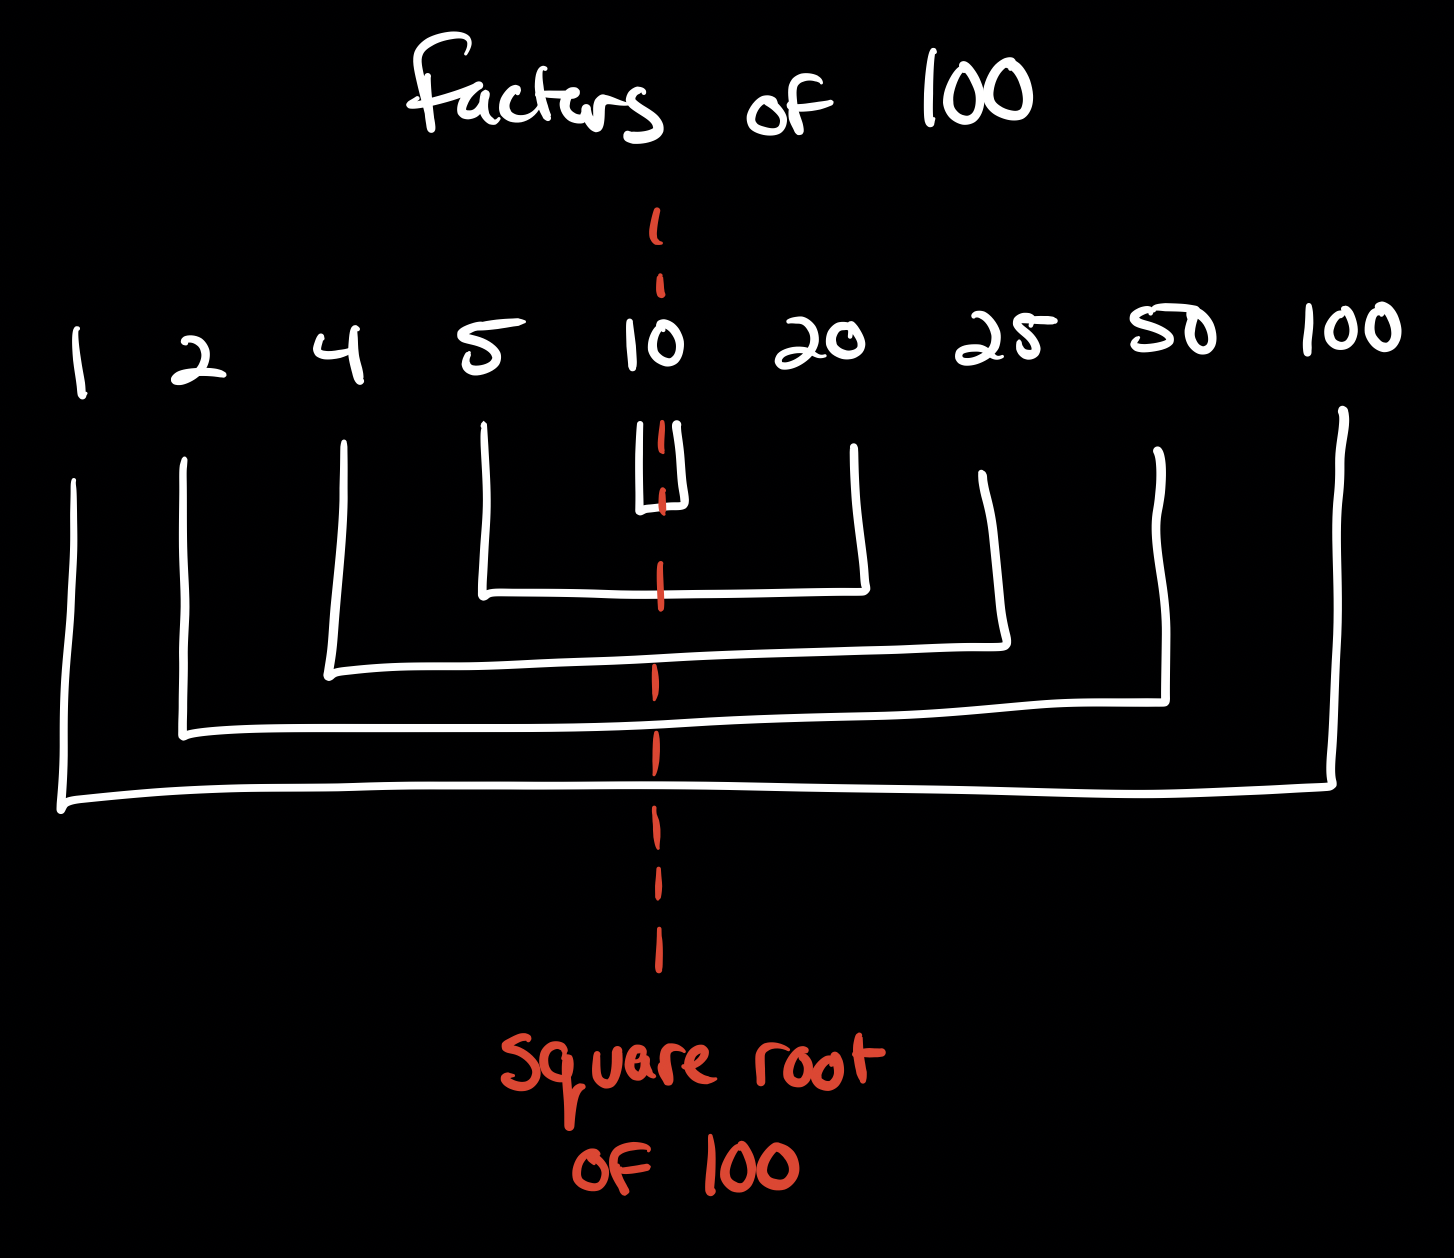 factors of 100
1 2 4 5 10 20 25 50 100
square root
of 100